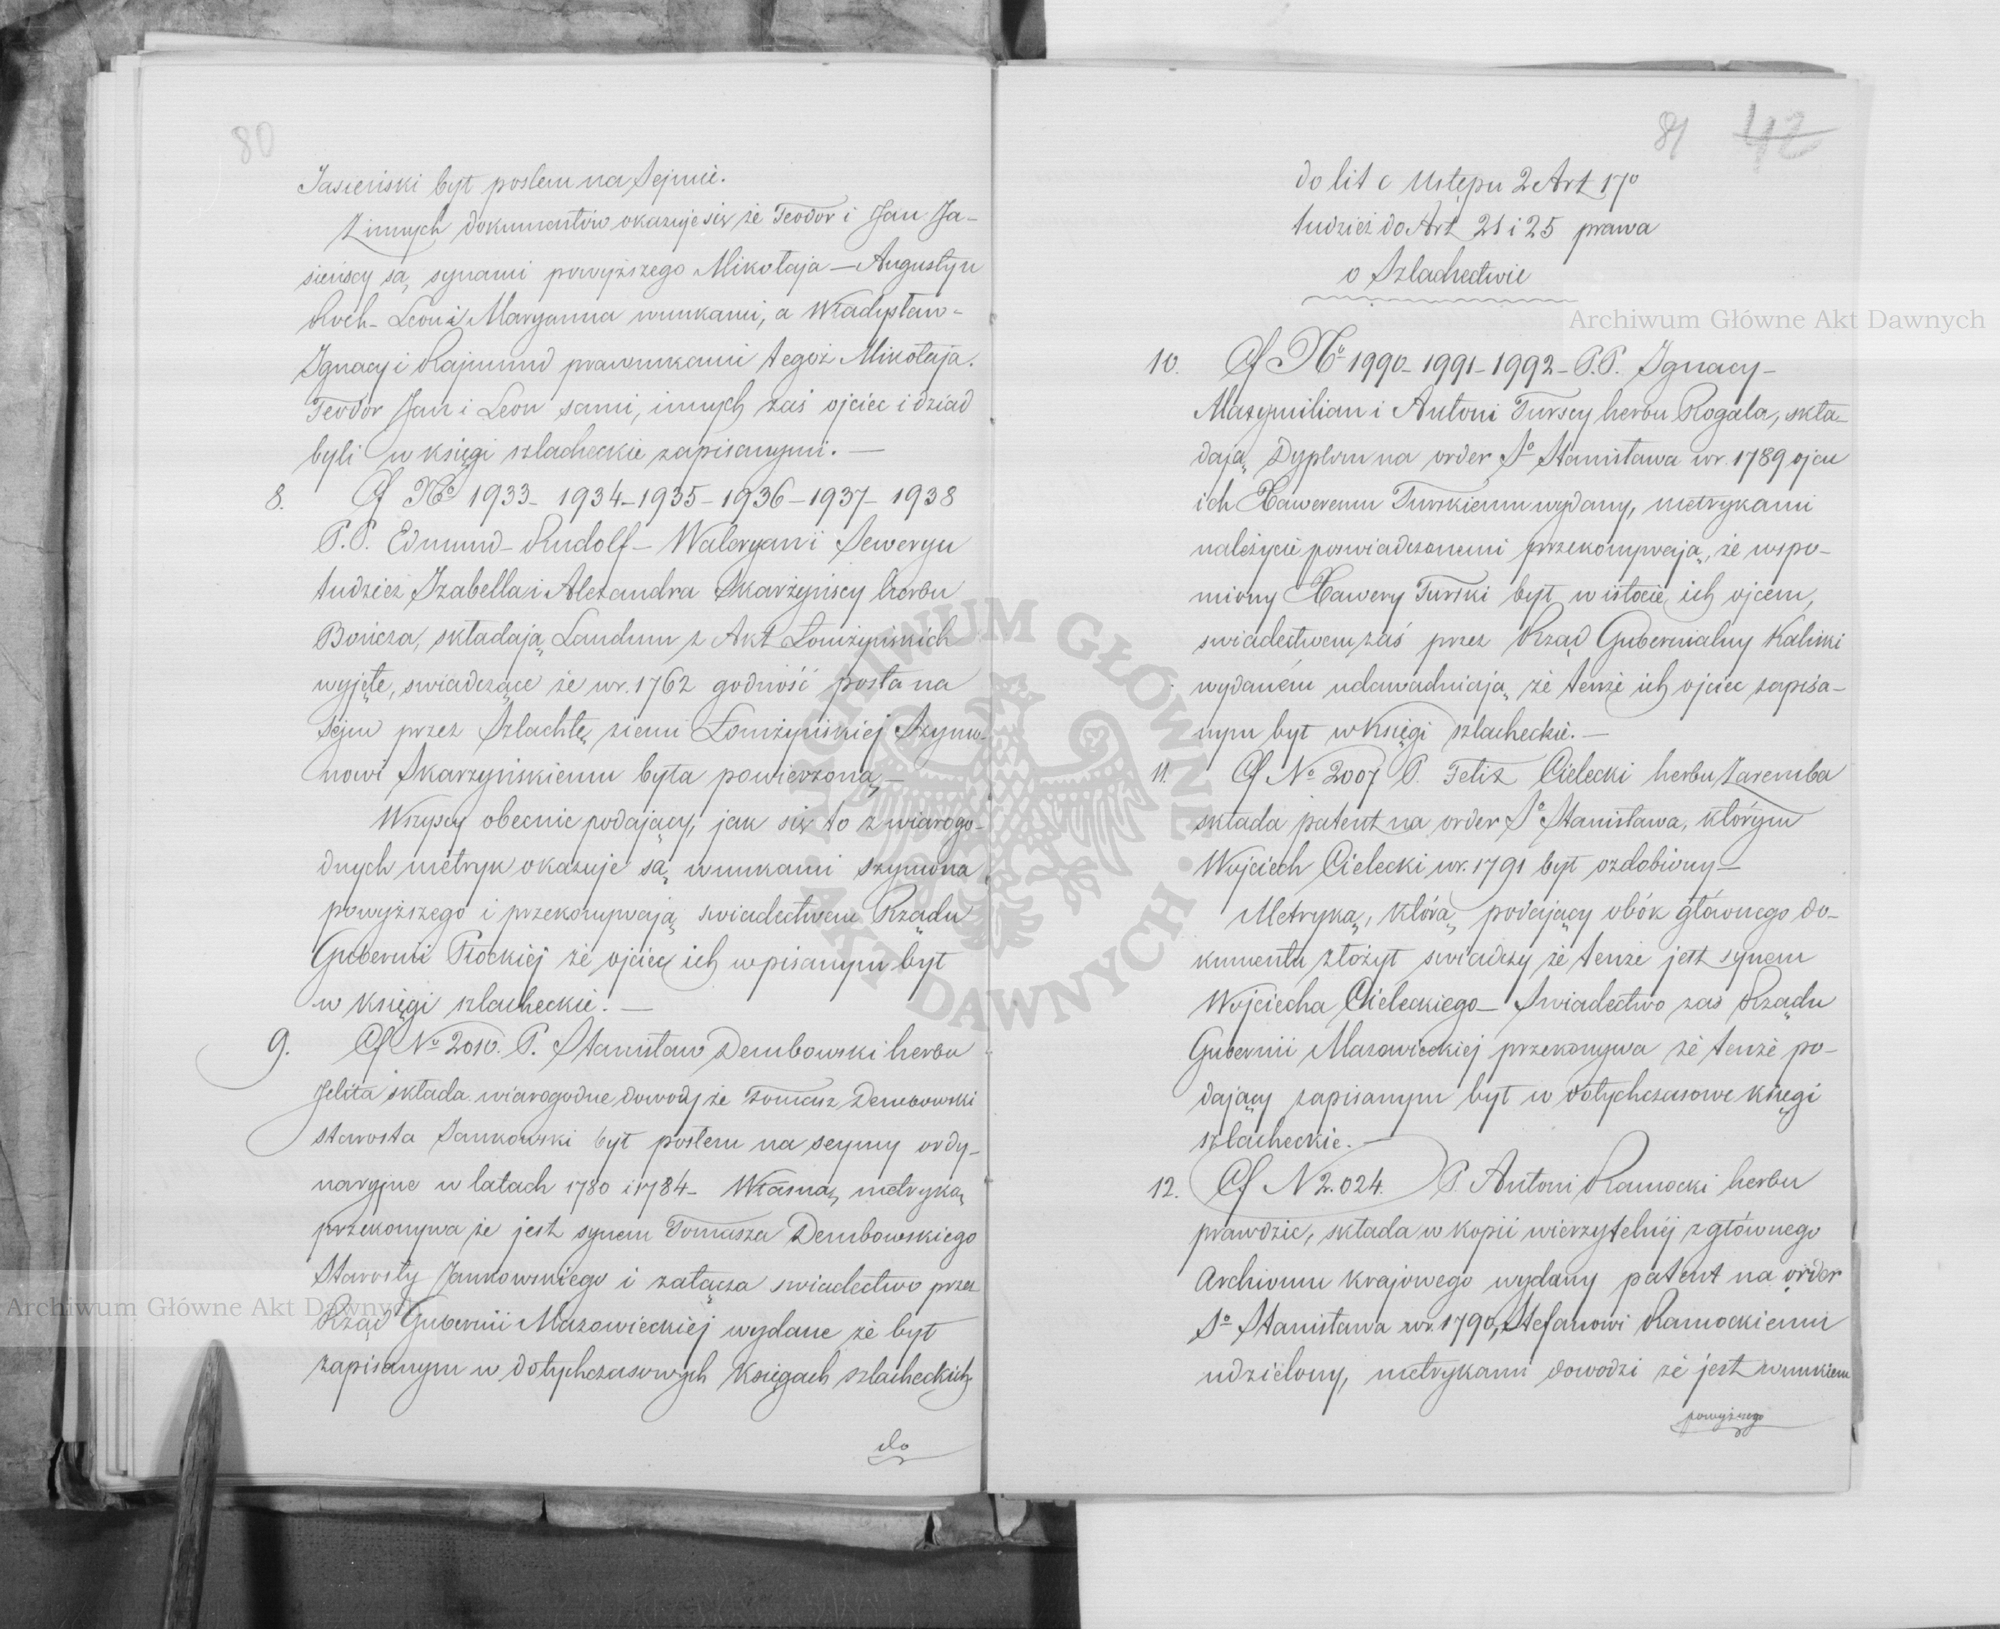 80
Jasieński był posłem na Sejmie.
Z innych dokumentów okazuje się że Teodor i Jan Ja-
sieńscy są synami powyższego Mikołaja — Augustyn
Roch - Leon i Maryanna wnukami, a Władysław -
Ignacy i Rajmund prawnukami tegoż Mikołaja.
Teodor Jan i Leon sami, innych zaś ojciec i dziad
byli w księgi szlacheckie zapisanymi. —
8. Cf No 1933 - 1934 - 1935 - 1936 - 1937 - 1938
P.P. Edmund - Rudolf - Waleryan i Seweryn
tudzież Izabella i Alexandra Skarżyńscy herbu
Bończa, składają Laudum z Akt Łomżyńskich
wyjęte, swiadczące że w r. 1762 godność posła na
Sejm przez Szlachtę ziemi Łomżyńskiej Szymo-
nowi Skarzyńskiemu była powierzoną —
Wszyscy obecnie podający, jak się to z wiarogo-
dnych metryk okazuje są wnukami Szymona
powyższego i przekonywają swiadectwem Rządu
Gubernii Płockiej że ojciec ich wpisanym był
w księgi szlacheckie. —
9. Cf No 2010. P. Stanisław Dembowski herbu
Jelita składa wiarogodne dowody że Tomasz Dembowski
starosta Jankowski był posłem na seymy ordy-
naryjne w latach 1780 i 1784 - Własną metryką
przekonywa że jest synem Tomasza Dembowskiego
Starosty Jankowskiego i załącza swiadectwo przez
Rząd Gubernii Mazowieckiej wydane że był
zapisanym w dotychczasowych Księgach szlacheckich
do
81 42
do lit c Ustępu 2 Art 17o
tudzież do Art 21 i 25 prawa
o Szlachectwie
10. Cf No 1990 - 1991 - 1992 - P.P. Ignacy -
Maxymilian i Antoni Turscy herbu Rogala, skła-
dają Dyplom na order So Stanisława w r. 1789 ojcu
ich Xaweremu Turskiemu wydany, metrykami
należycie poswiadczonemi przekonywają, że wspo-
miony Xawery Turski był w istocie ich ojcem,
swiadectwem zaś przez Rząd Gubernialny Kaliski
wydaném udowadniają że tenże ich ojciec zapisa-
nym był w Księgi szlacheckie. —
11. Cf No 2007 P. Felix Cielecki herbu Zaremba
składa patent na order So Stanisława, którym
Wojciech Cielecki w r. 1791 był ozdobiony —
Metryka, którą podający obók głównego do-
kumentu złożył swiadczy że tenże jest synem
Wojciecha Cieleckiego - Swiadectwo zas Rządu
Gubernii Mazowieckiej przekonywa że tenże po-
dający zapisanym był w dotychczasowe księgi
szlacheckie. —
12. Cf N 2.024. P. Antoni Ramocki herbu
prawdzic, składa w kopii wierzytelnéj z głównego
Archivum krajowego wydany patent na order
So Stanisława w r. 1790, Stefanowi Ramockiemu
udzielony, metrykami dowodzi że jest wnukiem
powyższego
Archiwum Główne Akt Dawnych
Archiwum Główne Akt Dawnych
ARCHIWUM GŁÓWNE AKT DAWNYCH